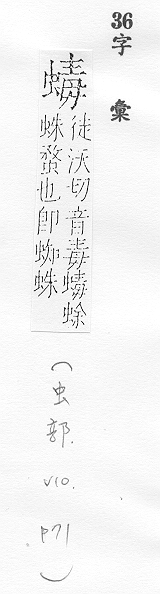 36 字 彙
蝳
徒沃切音毒蝳蜍
蛛蝥也卽蜘蛛
(虫部. V10. P71)